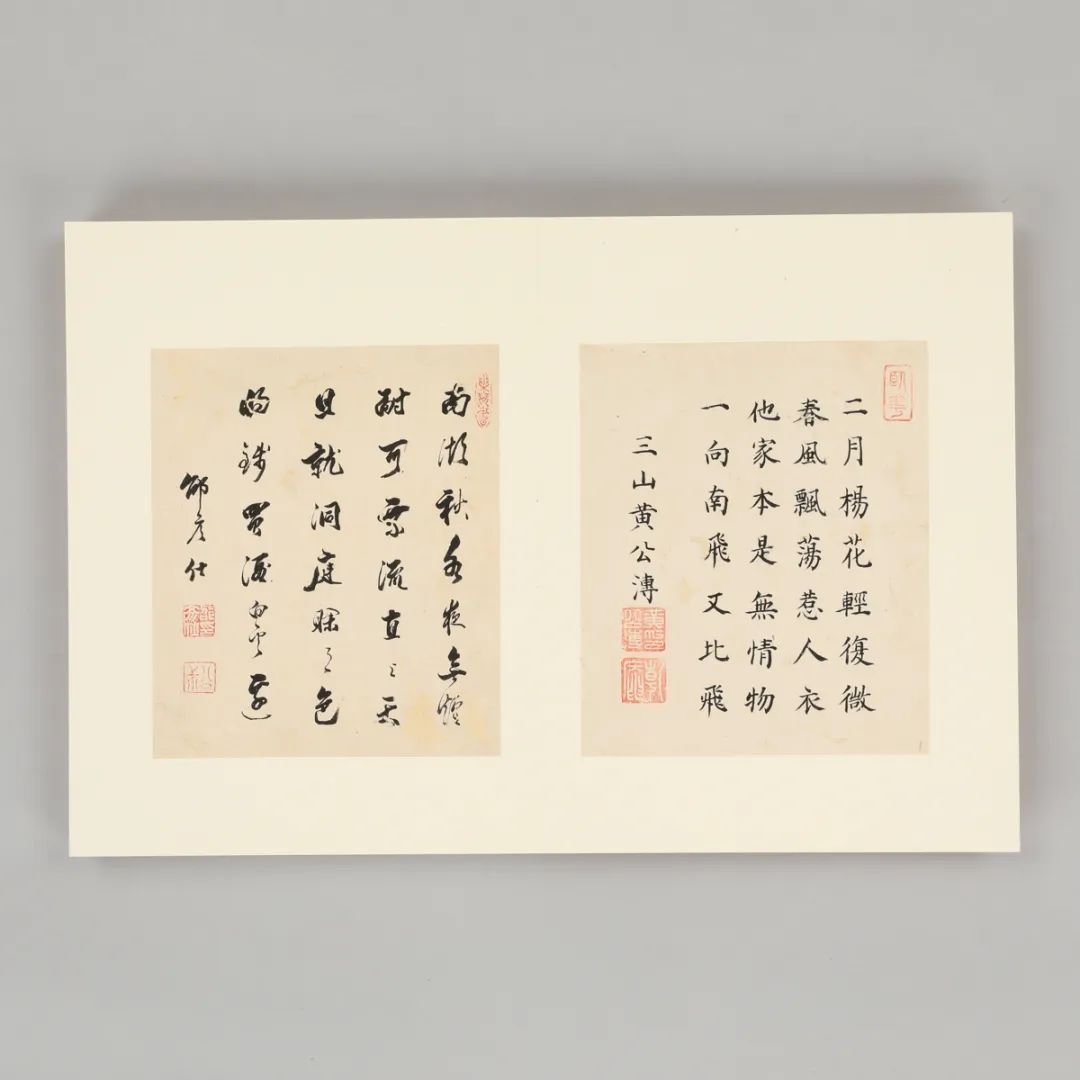 二月楊花輕復微
春風飄蕩惹人衣
他家本是無情物
一向南飛又北飛
三山黃公溥
南湖秋水夜無煙
耐可乘流直上天
且就洞庭賒月色
將錢買酒白雲邊
彥仕